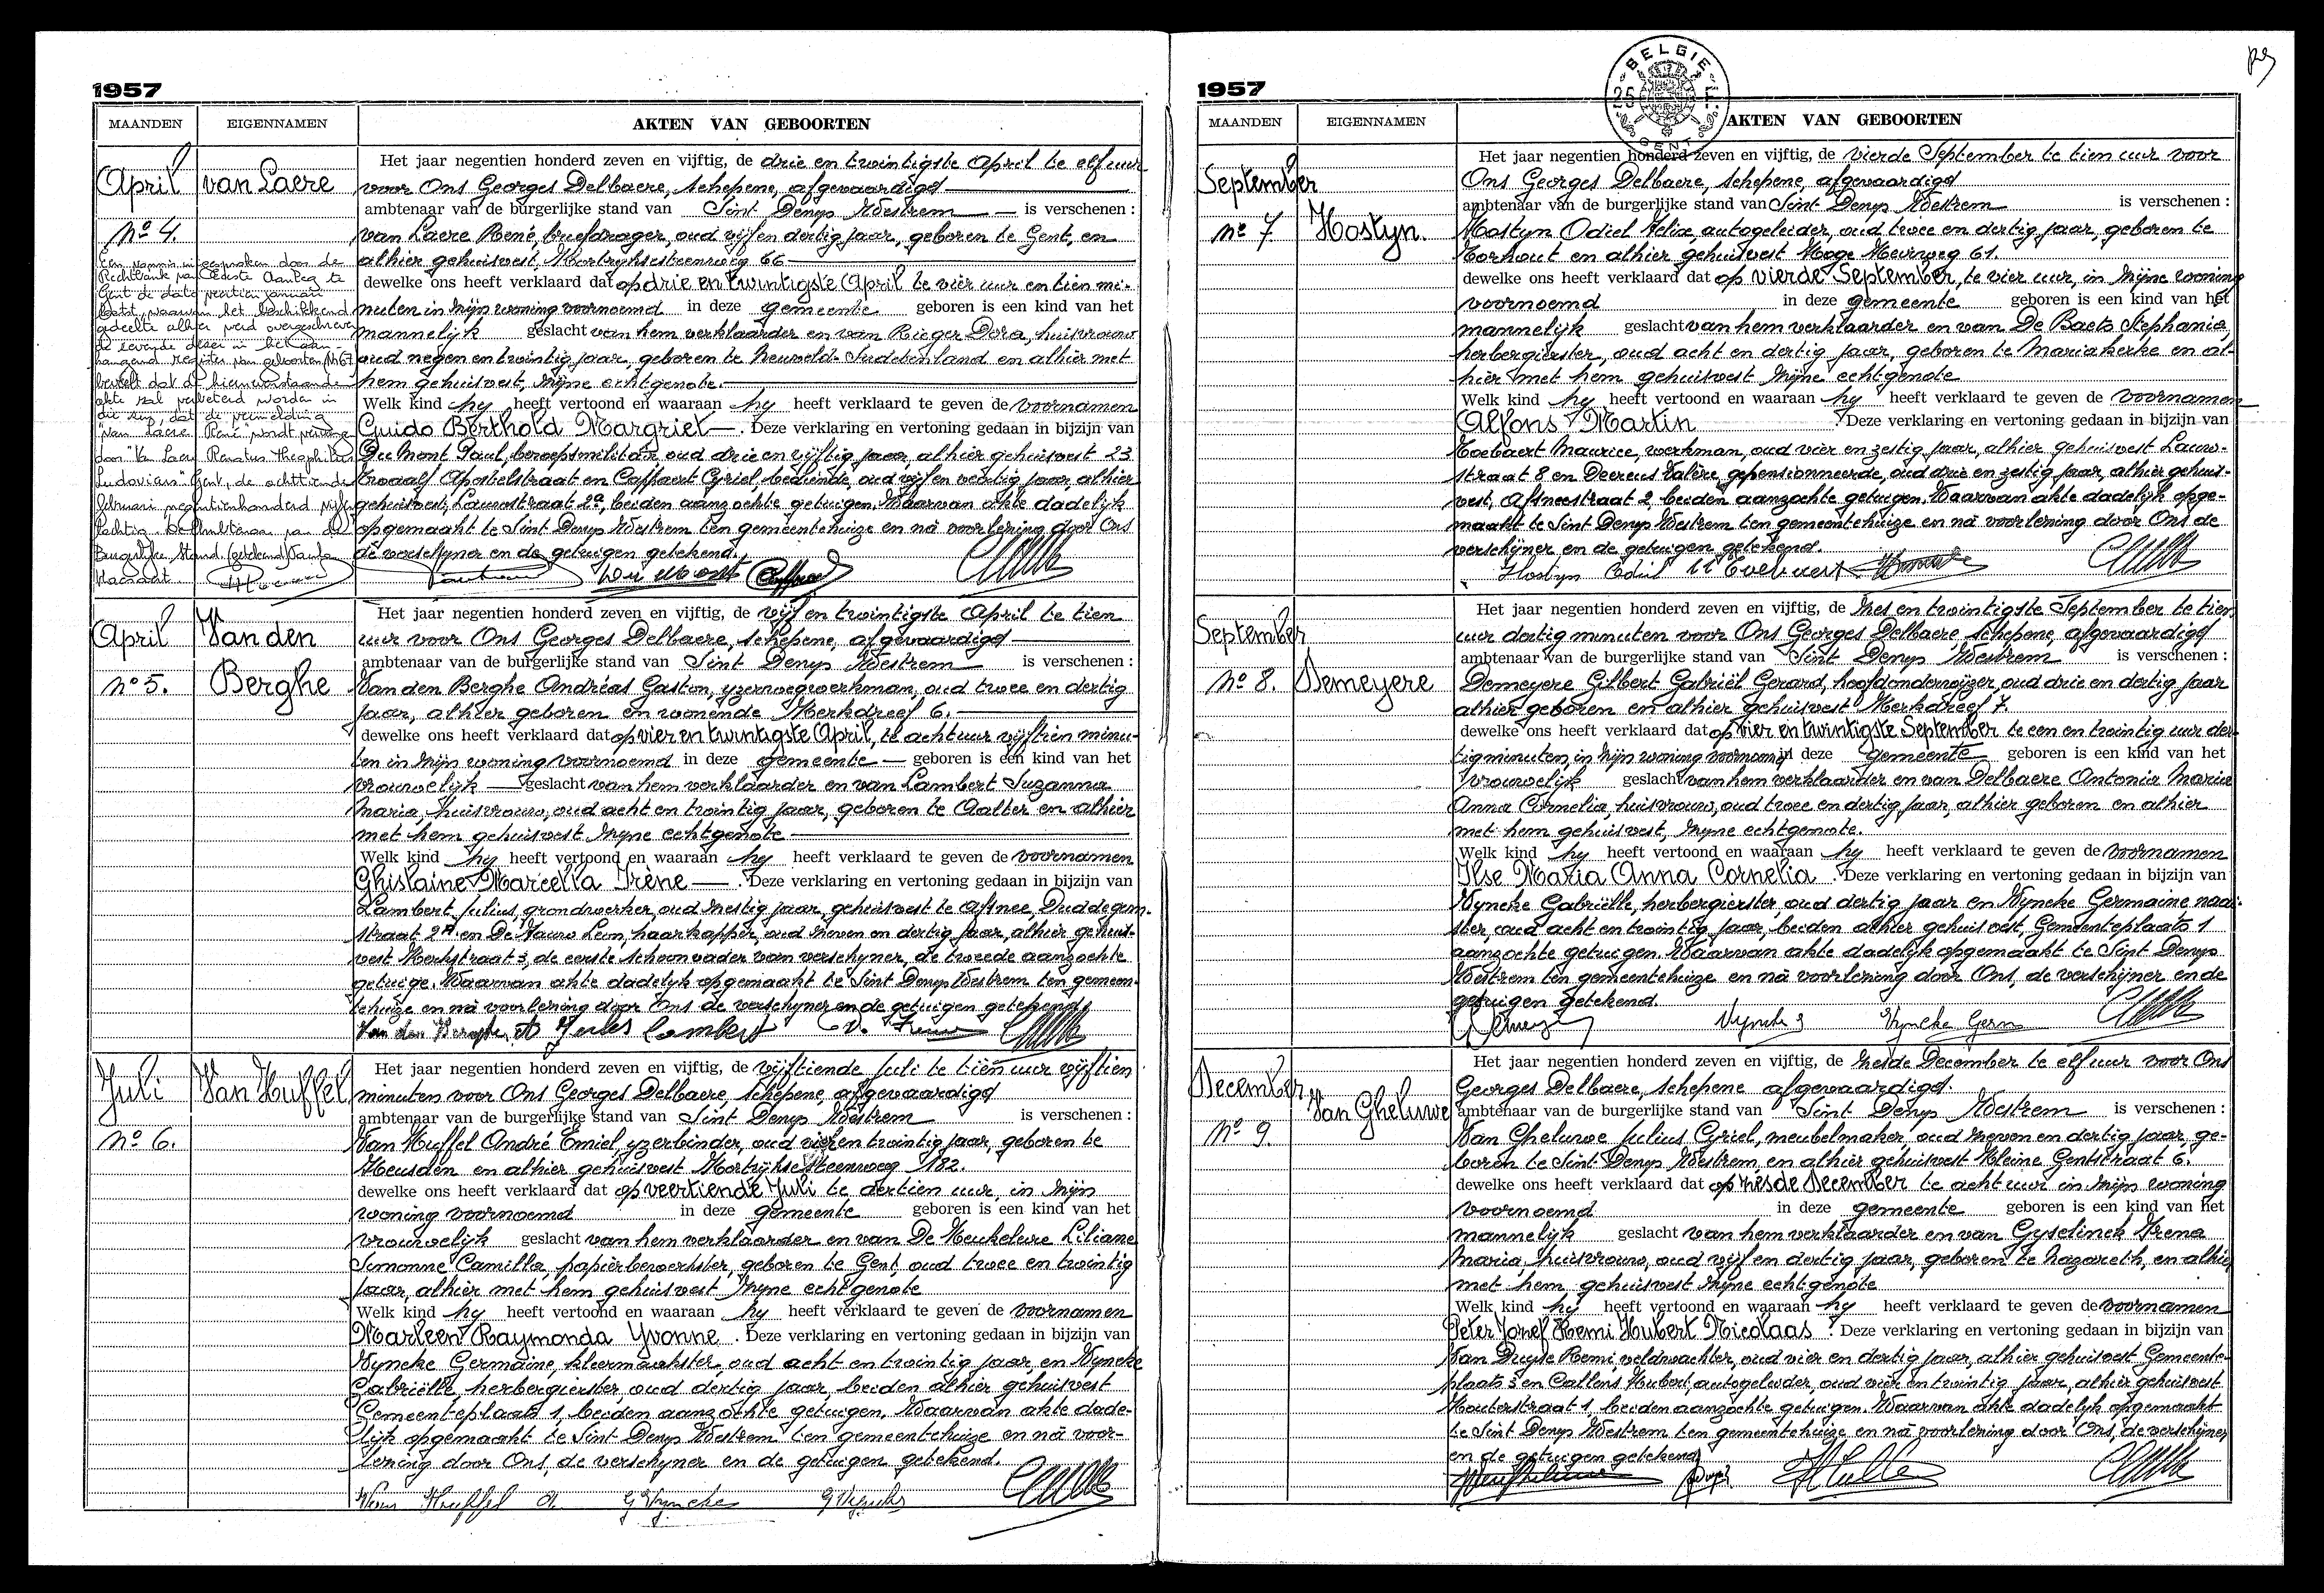 1957
MAANDEN EIGENNAMEN AKTEN VAN GEBOORTEN
April van Laere
No 4.
Een vonnis uitgesproken door de
Rechtbank van Eerste Aanleg te
Gent de dato
waarvan het beschikkend
gedeelte alhier werd overgeschreven
in het aan-
hangend register van geboorten
beveelt dat de hiernevenstaande
akte zal verbeterd worden in
die zin, dat de vermelding
"van Laere René" wordt
door "Van Laere Renatus Theophilus
Ludovicus" Gent, de achttiende
februari negentienhonderd vijf en
tachtig. De Ambtenaar van de
Burgerlijke Stand (getekend)
Het jaar negentien honderd zeven en vijftig, de drie en twintigste April te elf uur
voor Ons Georges Delbaere, schepene, afgevaardigd
ambtenaar van de burgerlijke stand van Sint Denys Westrem is verschenen :
van Laere René, briefdrager, oud vijf en dertig jaar, geboren te Gent, en
alhier gehuisvest, Kortrijksesteenweg 66
dewelke ons heeft verklaard dat op drie en twintigste April te vier uur en tien mi-
nuten in zijn woning voornoemd in deze gemeente geboren is een kind van het
mannelijk geslacht van hem verklaarder en van Rieger Dora, huisvrouw
oud negen en twintig jaar, geboren te Neuwelt-Sudetenland en alhier met
hem gehuisvest, zijne echtgenote.
Welk kind hy heeft vertoond en waaraan hy heeft verklaard te geven de voornamen
Guido Berthold Margriet. Deze verklaring en vertoning gedaan in bijzijn van
Du Mont Paul, beroepsmilitair, oud drie en vijftig jaar, alhier gehuisvest 23
Twaalf Apostelstraat en Caffaert Cyriel, bediende, oud vijf en veertig jaar, alhier
gehuisvest, Lauwstraat 2a, beiden aanzochte getuigen. Waarvan akte dadelijk
opgemaakt te Sint Denys Westrem ten gemeentehuize en nà voorlezing door Ons
de verschyner en de getuigen getekend.
Du Mont
April Van den
No 5. Berghe
Het jaar negentien honderd zeven en vijftig, de vijf en twintigste April te tien
uur voor Ons Georges Delbaere, schepene, afgevaardigd
ambtenaar van de burgerlijke stand van Sint Denys Westrem is verschenen :
Van den Berghe Andréas Gaston, yzerwegwerkman, oud twee en dertig
jaar, alhier geboren en wonende Kerkdreef 6.
dewelke ons heeft verklaard dat op vier en twintigste April, te acht uur vijftien minu-
ten in zijn woning voornoemd in deze gemeente geboren is een kind van het
vrouwelijk geslacht van hem verklaarder en van Lambert Suzanna
Maria, huisvrouw, oud acht en twintig jaar, geboren te Aalter en alhier
met hem gehuisvest zyne echtgenote
Welk kind hy heeft vertoond en waaraan hy heeft verklaard te geven de voornamen
Ghislaine Marcella Irène. Deze verklaring en vertoning gedaan in bijzijn van
Lambert Julius, grondwerker, oud zestig jaar, gehuisvest te Afsnee, Duddegem-
straat 2A en De Fauw Leon, haarkapper, oud zeven en dertig jaar, alhier gehuis-
vest Kerkstraat 3, de eerste schoonvader van verschyner, de tweede aanzochte
getuige. Waarvan akte dadelijk opgemaakt te Sint Denys Westrem ten gemeen-
tehuize en nà voorlezing door Ons de verschyner en de getuigen getekend.
Van den Berghe A Jules Lambert
Juli Van Huffel
No 6.
Het jaar negentien honderd zeven en vijftig, de vijftiende Juli te tien uur vijftien
minuten voor Ons Georges Delbaere, schepene, afgevaardigd
ambtenaar van de burgerlijke stand van Sint Denys Westrem is verschenen :
Van Huffel André Emiel, yzerbinder, oud vier en twintig jaar, geboren te
Heusden en alhier gehuisvest Kortrijksesteenweg 182.
dewelke ons heeft verklaard dat op veertiende Juli te dertien uur, in zijn
woning voornoemd in deze gemeente geboren is een kind van het
vrouwelijk geslacht van hem verklaarder en van De Keukeleire Liliane
Simonne Camilla, papierbewerkster, geboren te Gent, oud twee en twintig
jaar, alhier met hem gehuisvest zyne echtgenote
Welk kind hy heeft vertoond en waaraan hy heeft verklaard te geven de voornamen
Marleen Raymonda Yvonne. Deze verklaring en vertoning gedaan in bijzijn van
Vyncke Germaine, kleermaakster, oud acht en twintig jaar, en Vyncke
Gabriëlle, herbergierster oud dertig jaar, beiden alhier gehuisvest
Gemeenteplaats 1, beiden aanzochte getuigen. Waarvan akte dade-
lijk opgemaakt te Sint Denys Westrem ten gemeentehuize en nà voor-
lezing door Ons, de verschyner en de getuigen getekend.
Van Huffel A G Vyncke G Vyncke
1957
BELGIE 25 F. GENT
MAANDEN EIGENNAMEN AKTEN VAN GEBOORTEN
September
No 7 Hostyn.
Het jaar negentien honderd zeven en vijftig, de vierde September te tien uur voor
Ons Georges Delbaere, schepene, afgevaardigd
ambtenaar van de burgerlijke stand van Sint Denys Westrem is verschenen :
Hostyn Odiel Felix, autogeleider, oud twee en dertig jaar, geboren te
Torhout en alhier gehuisvest Hoge Heirweg 61.
dewelke ons heeft verklaard dat op vierde September, te vier uur, in zijne woning
voornoemd in deze gemeente geboren is een kind van het
mannelijk geslacht van hem verklaarder en van De Baets Stephania,
herbergierster, oud acht en dertig jaar, geboren te Mariakerke en al-
hier met hem gehuisvest zijne echtgenote
Welk kind hy heeft vertoond en waaraan hy heeft verklaard te geven de voornamen
Alfons Martin Deze verklaring en vertoning gedaan in bijzijn van
Toebaert Maurice, werkman, oud vier en zestig jaar, alhier gehuisvest Lauw-
straat 8 en Deereus Valère, gepensionneerde, oud drie en zestig jaar, alhier gehuis-
vest, Afsneestraat 2, beiden aanzochte getuigen. Waarvan akte dadelyk opge-
maakt te Sint Denys Westrem ten gemeentehuize en nà voorlezing door Ons de
verschijner en de getuigen getekend.
Hostyn Odiel
September
No 8. Demeyere
Het jaar negentien honderd zeven en vijftig, de zes en twintigste September te tien
uur dertig minuten voor Ons Georges Delbaere, schepene, afgevaardigd
ambtenaar van de burgerlijke stand van Sint Denys Westrem is verschenen :
Demeyere Gilbert Gabriël Gerard, hoofdonderwijzer, oud drie en dertig jaar
alhier geboren en alhier gehuisvest Kerkdreef 7.
dewelke ons heeft verklaard dat op vier en twintigste September te een en twintig uur der-
tig minuten, in zijn woning voornoemd in deze gemeente geboren is een kind van het
vrouwelijk geslacht van hem verklaarder en van Delbaere Antonia Maria
Anna Cornelia, huisvrouw, oud twee en dertig jaar, alhier geboren en alhier
met hem gehuisvest, zijne echtgenote.
Welk kind hy heeft vertoond en waaraan hy heeft verklaard te geven de voornamen
Ilse Maria Anna Cornelia. Deze verklaring en vertoning gedaan in bijzijn van
Vyncke Gabriëlle, herbergierster, oud dertig jaar en Vyncke Germaine naai-
ster, oud acht en twintig jaar, beiden alhier gehuisvest, Gemeenteplaats 1
aanzochte getuigen. Waarvan akte dadelijk opgemaakt te Sint Denys
Westrem ten gemeentehuize en nà voorlezing door Ons, de verschijner en de
getuigen getekend.
Vyncke G Vyncke Germ
December Van Gheluwe
No 9
Het jaar negentien honderd zeven en vijftig, de zesde December te elf uur voor Ons
Georges Delbaere, schepene afgevaardigd.
ambtenaar van de burgerlijke stand van Sint Denys Westrem is verschenen :
Van Gheluwe Julius Cyriel, meubelmaker, oud zeven en dertig jaar, ge-
boren te Sint Denys Westrem, en alhier gehuisvest Kleine Gentstraat 6.
dewelke ons heeft verklaard dat op zesde December te acht uur in zijn woning
voornoemd in deze gemeente geboren is een kind van het
mannelijk geslacht van hem verklaarder en van Gyselinck Irena
Maria, huisvrouw, oud vijf en dertig jaar, geboren te Nazareth, en alhier
met hem gehuisvest zijne echtgenote
Welk kind hy heeft vertoond en waaraan hy heeft verklaard te geven de voornamen
Peter Jozef Remi Hubert Nicolaas. Deze verklaring en vertoning gedaan in bijzijn van
Van Duyse Remi, veldwachter, oud vier en dertig jaar, alhier gehuisvest Gemeente-
plaats 3 en Callens Hubert, autogeleider, oud vier en twintig jaar, alhier gehuisvest
Kouterstraat 1, beiden aanzochte getuigen. Waarvan akte dadelijk opgemaakt
te Sint Denys Westrem ten gemeentehuize en nà voorlezing door Ons, de verschijner
en de getuigen getekend